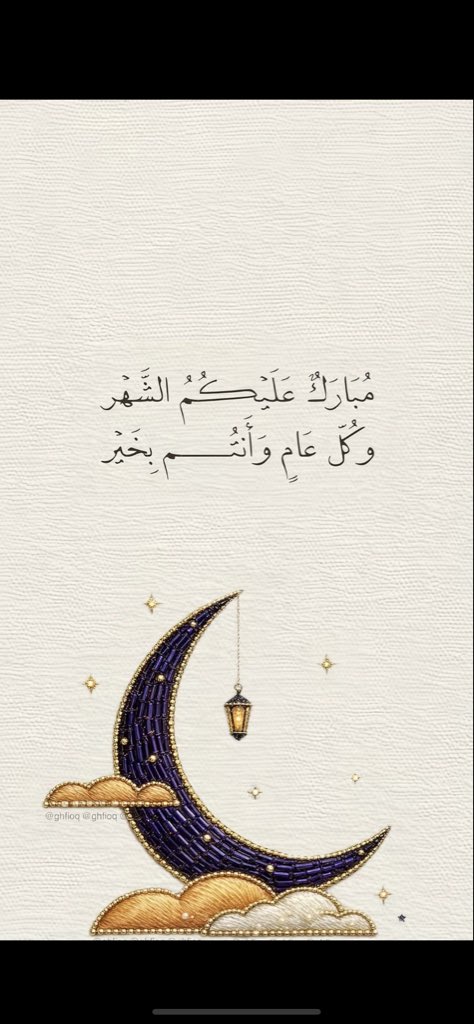 مُبَارَكٌ عَلَيْكُمُ الشَّهْر
وكُلّ عَامٍ وَأَنتُم بِخَيْر
@ghfioq @ghfioq